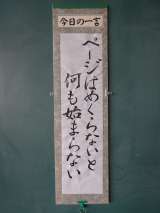 今日の一言
ページはめくらないと
何も始まらない